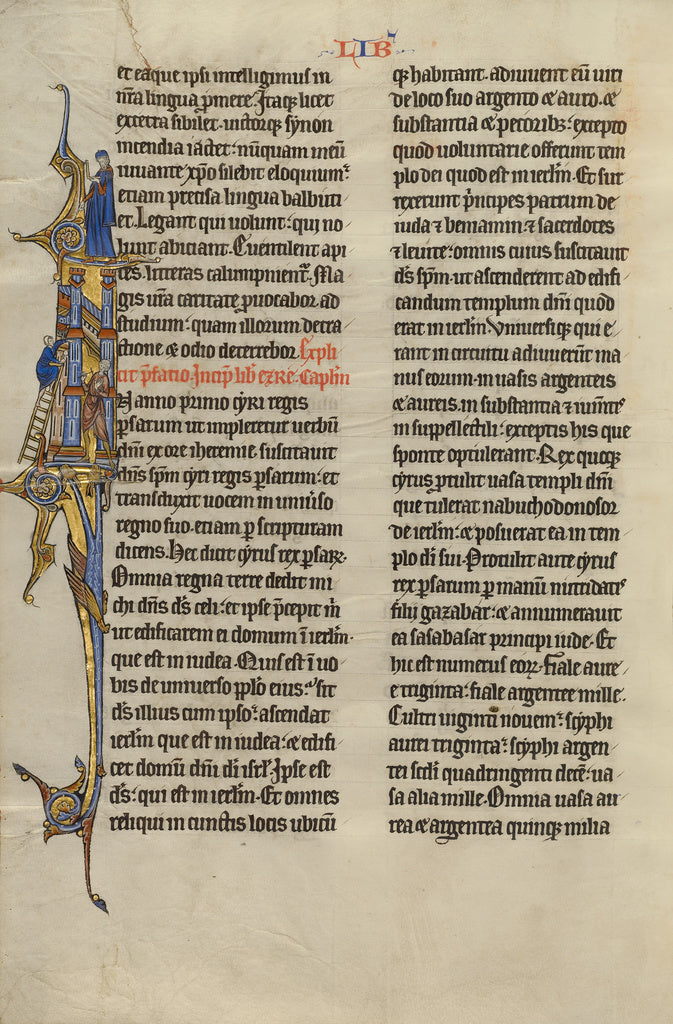 LIB'
et eaque ipsi intelligimus in
nr̄a lingua p̱mere. Itaq; licet
excetra sibilet. uictorq; synon
incendia iactet: nūquam meū
iuuante xp̄o silebit eloquium:
etiam precisa lingua balbuti
et. Legant qui uolunt: qui no
lunt abiciant. Euentilent api
ces. litteras calumpnient᷑. Ma
gis ur̄a caritate ꝓuocabor ad
studium: quam illorum detra
ctione et odio deterrebor. Expli
cit p̄fatio. Incip̄ lib̄ ezre. Cap̄l'm
IN anno primo cyri regis
ꝑsarum ut impleretur uerbū
dn̄i ex ore iheremie. suscitauit
dn̄s sp̄m cyri regis ꝑsarum: et
transduxit uocem in uniuerso
regno suo. etiam ꝑ scripturam
dicens. Hec dicit cyrus rex ꝑsaꝝ.
Omnia regna terre dedit mi
chi dn̄s ds̄ celi: et ipse p̄cepit m̄
ut edificarem ei domum ī ierl̄m.
que est in iudea. Quis est ī uo
bis de uniuerso pp̄lo eius: sit
ds̄ illius cum ipso: ascendat
ierl̄m que est in iudea: et edifi
cet domū dn̄i dī isrl̄. Ipse est
ds̄: qui est in ierl̄m. Et omnes
reliqui in cunctis locis ubicū
q; habitant. adiuuent eū uiri
de loco suo argento et auro. et
substantia et pecorib;: excepto
quod uoluntarie offerunt tem
plo dei quod est in ierl̄m. Et sur
rexerunt p̄ncipes patrum de
iuda ⁊ beniamin: ⁊ sacerdotes
⁊ leuite: omnis cuius suscitauit
ds̄ sp̄m. ut ascenderent ad edifi
candum templum dn̄i quod
erat in ierl̄m. Vniuersiq; qui e
rant in circuitu adiuuerūt ma
nus eorum. in uasis argenteis
et aureis. in substantia ⁊ iumt̄is
in suppellectili: exceptis his que
sponte optulerant. Rex quoq;
cyrus ꝓtulit uasa templi dn̄i
que tulerat nabuchodonosor
de ierl̄m: et posuerat ea in tem
plo dī sui. Protulit autē cyrus
rex ꝑsarum ꝑ manū mitridatis
filii gazabar: et annumerauit
ea sasabasar principi iude. Et
hic est numerus eoꝝ. Fiale aure
e triginta: fiale argentee mille.
Cultri uiginti nouem: scyphi
aurei triginta: scyphi argen
tei scd̄i quadringenti decē: ua
sa alia mille. Omnia uasa au
rea et argentea quinq; milia